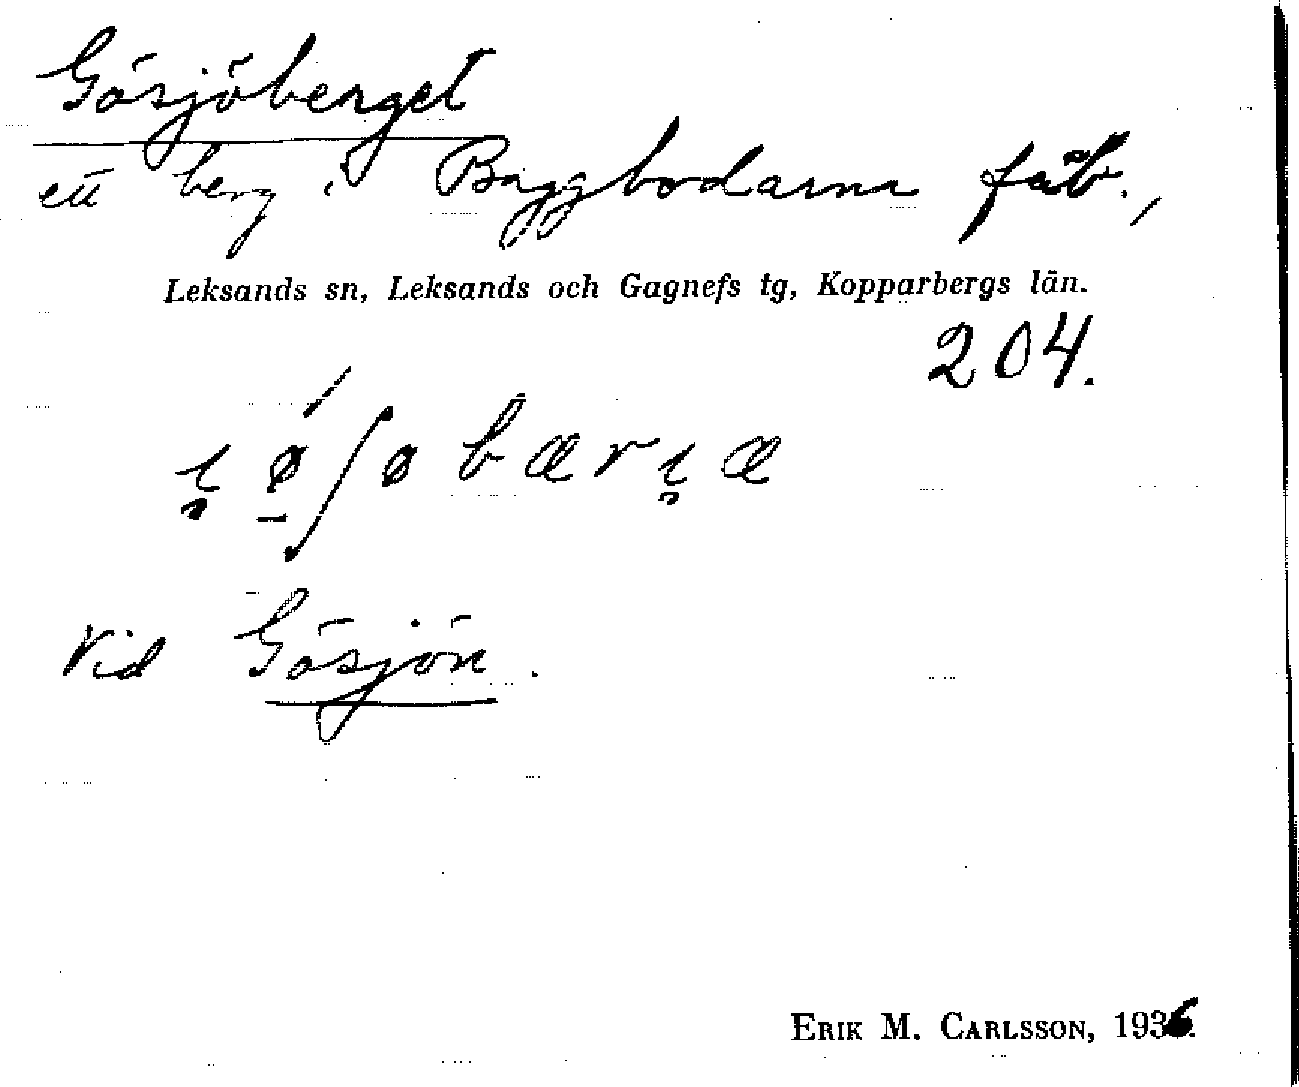 Gösjöberget
ett berg i Baggbodarna fäb.,
Leksands sn, Leksands och Gagnefs tg, Kopparbergs län.
204.
Vid Gösjön.
ERIK M. CARLSSON, 1936.